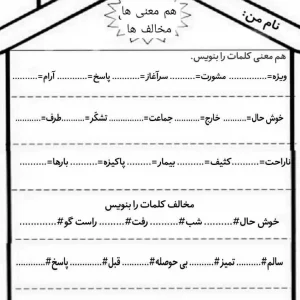 هم معنی ها
مخالف ها
نام من:
هم معنی کلمات را بنویس.
ویژه=............... مشورت=........... سرآغاز=........... پاسخ=............ آرام=...........
خوش حال=.......... خارج=............ جماعت=.............. تشکّر=............طرف=...........
ناراحت=...........کثیف=........... بیمار=........... پاکیزه=............ بارها=...........
مخالف کلمات را بنویس
خوش حال#.......... شب#.......... رفت#.......... راست گو#...............
سالم#.......... تمیز#.......... بی حوصله#........... قبل#............ پاسخ#............